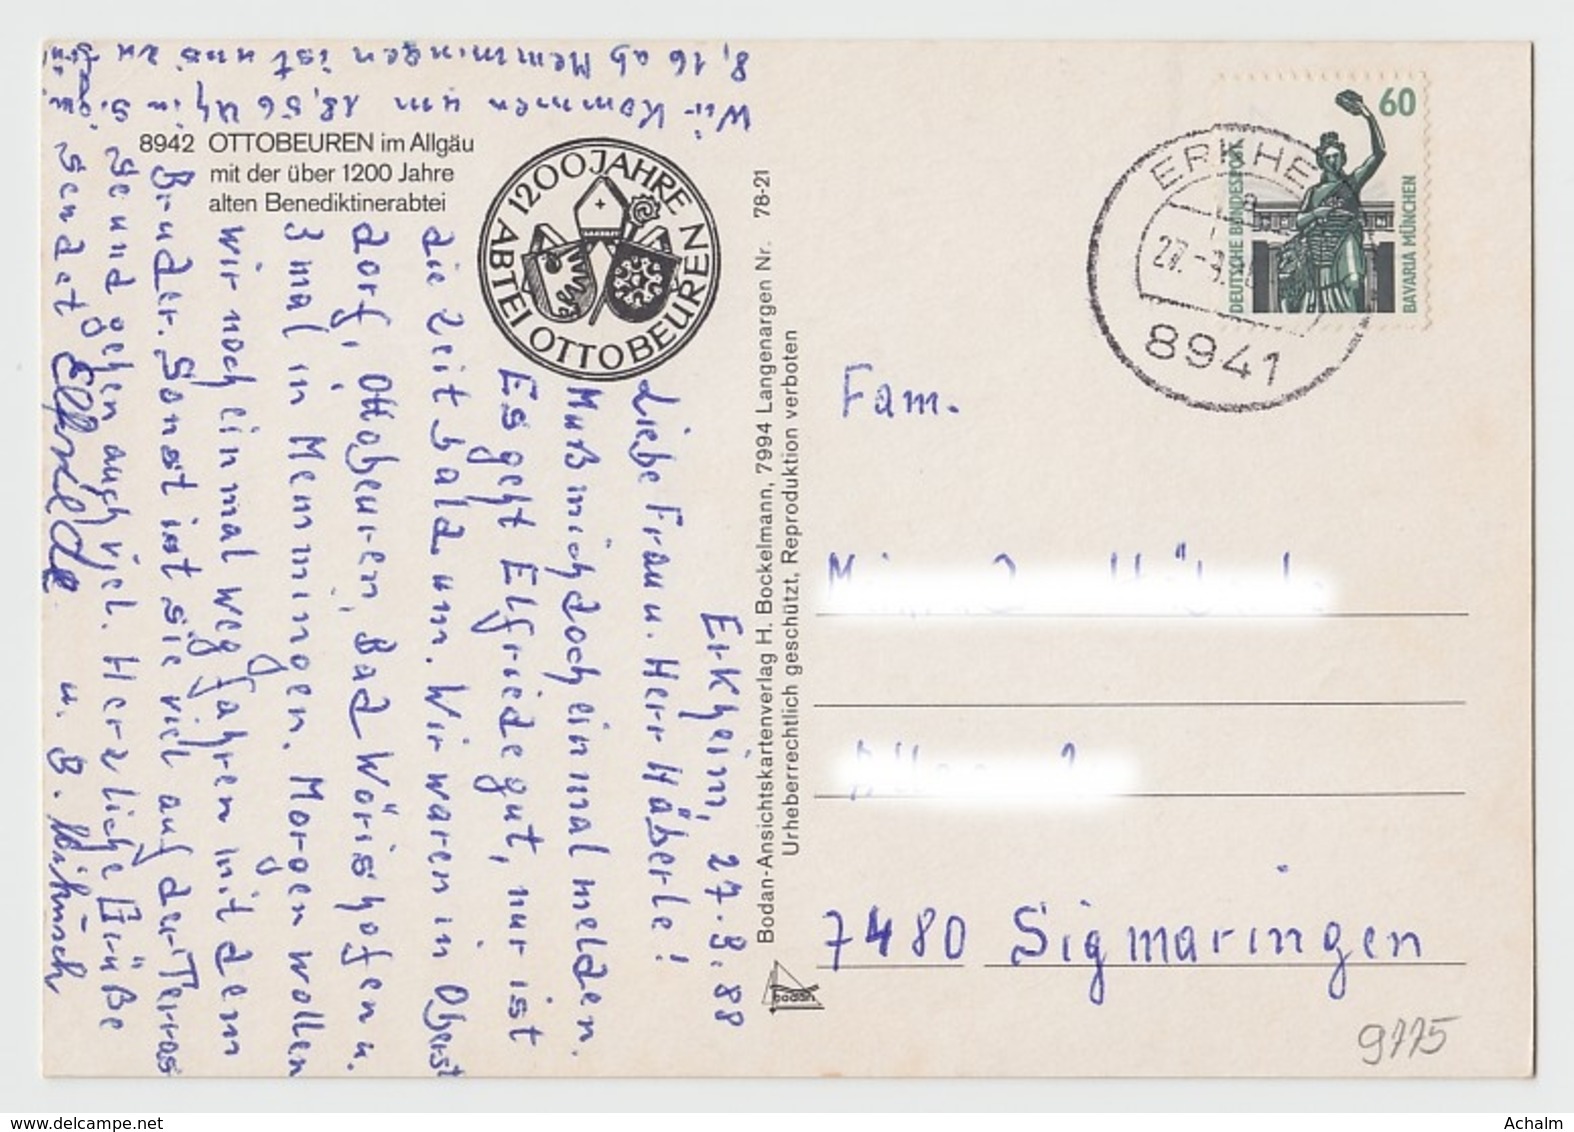 8942 OTTOBEUREN im Allgäu
mit der über 1200 Jahre
alten Benediktinerabtei
1200 JAHRE
ABTEI OTTOBEUREN
Erkheim, 27.9.88
Liebe Frau u. Herr Häberle!
Muß mich doch einmal melden.
Es geht Elfriede gut, nur ist
die Zeit bald um. Wir waren in Oberst
dorf, Ottobeuren, Bad Wörishofen u.
3 mal in Memmingen. Morgen wollen
wir noch einmal weg fahren mit dem
Bruder. Sonst ist sie viel auf der Terras
se und gehen auch viel. Herzliche Grüße
sendet Elfriede u. B.
Wir kommen um 18,56 Uhr in Sigm
8,16 ab Memmingen ist uns zu
Bodan-Ansichtskartenverlag H. Bockelmann, 7994 Langenargen Nr. 78-21
Urheberrechtlich geschützt, Reproduktion verboten
bodan
60
DEUTSCHE BUNDESPOST
BAVARIA MÜNCHEN
ERKHE
27.-9.
8941
Fam.
7480 Sigmaringen
9775
Achalm